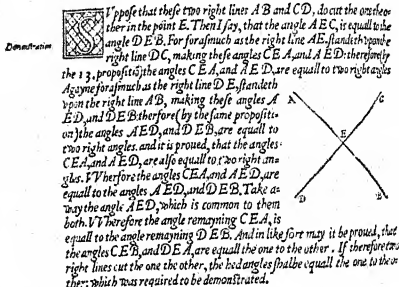 SVppose that these two right lines A B and C D, do cut the one the o-
ther in the point E. Then I say, that the angle A E C, is equall to the
Demonstration
angle D E B. For forasmuch as the right line AE. standeth vpon the
right line DC, making these angles C E A, and A E D: therefore by
the 13. propositiõ, the angles C E A, and A E D, are equall to two right angles.
Agayne forasmuch as the right line D E, standeth
vpon the right line A B, making these angles A
E D, and D E B: therfore (by the same propositi-
on) the angles A E D, and D E B, are equall to
two right angles. and it is proued, that the angles
C E A, and A E D, are also equall to two right an-
gles. VVherfore the angles C E A, and A E D, are
equall to the angles A E D, and D E B. Take a-
way the angle A E D, which is common to them
both. VVherefore the angle remayning C E A, is
equall to the angle remayning D E B. And in like sort may it be proued, that
the angles C E B, and D E A, are equall the one to the other. If therefore two
right lines cut the one the other, the hed angles shalbe equall the one to the o-
ther: which was required to be demonstrated.
A
C
E
D
B